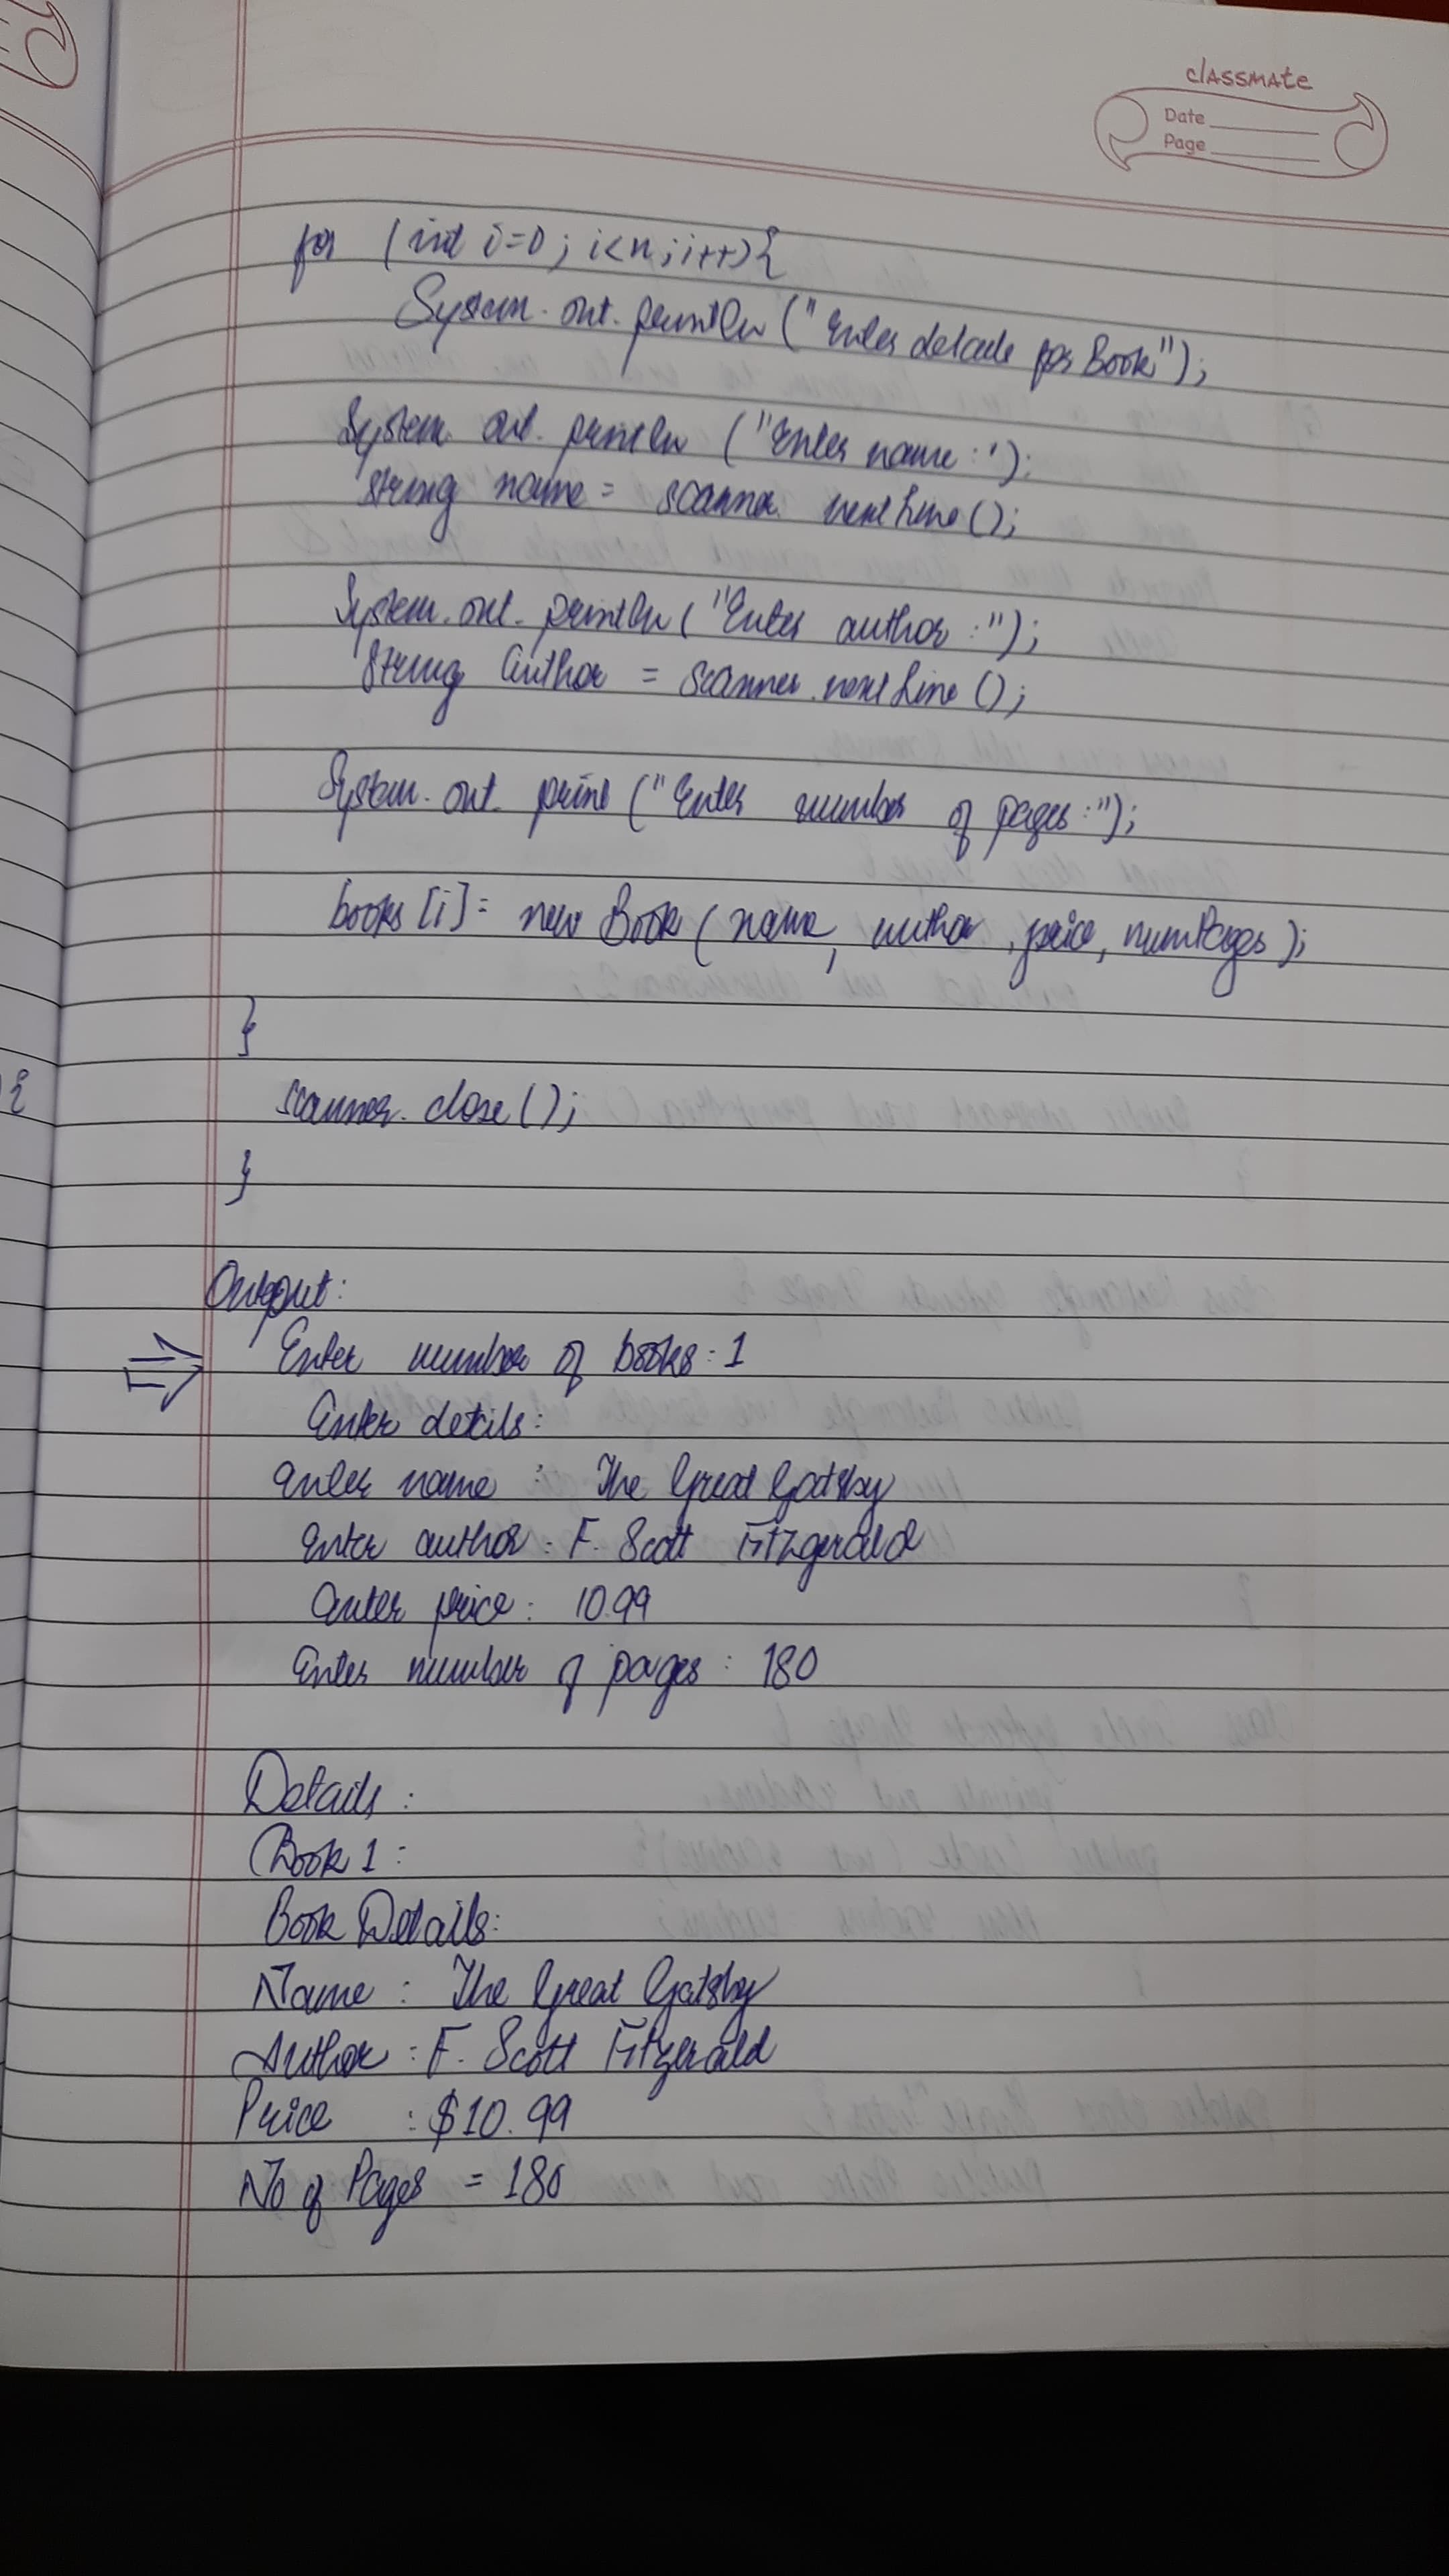 classmate
Date
Page
for (int i=0; i<n; i++){
System.out.println ("Enter details for Book");
System.out.println ("Enter name:');
string name = scanner.nextLine();
System.out.println ("Enter author:");
string author = scanner.nextLine();
System.out.print ("Enter number of pages:");
books[i]= new Book (name, author, price, numPages);
}
scanner.close();
}
Output:
Enter number of books: 1
Enter detils:
Enter name : The Great Gatsby
Enter author: F. Scott Fitzgerald
Enter price: 10.99
Enter number of pages : 180
Details :
Book 1 :
Book Details:
Name : The Great Gatsby
Author : F. Scott Fitzgerald
Price : $10.99
No of Pages = 180